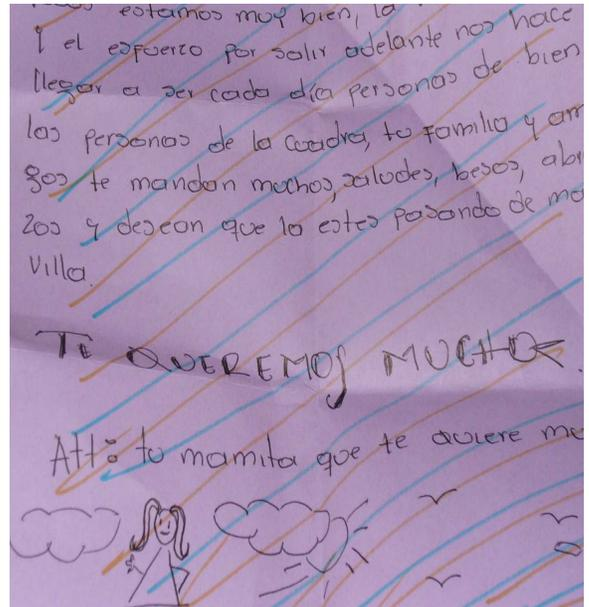 estamos muy bien, la
y el esfuerzo por salir adelante nos hace
llegar a ser cada día personas de bien
las personas de la cuadra, tu familia y am
gos te mandan muchos, saludes, besos, abr
zos y desean que lo estes pasando de ma
villa.
TE QUEREMOS MUCHO.
Att: tu mamita que te quiere mu